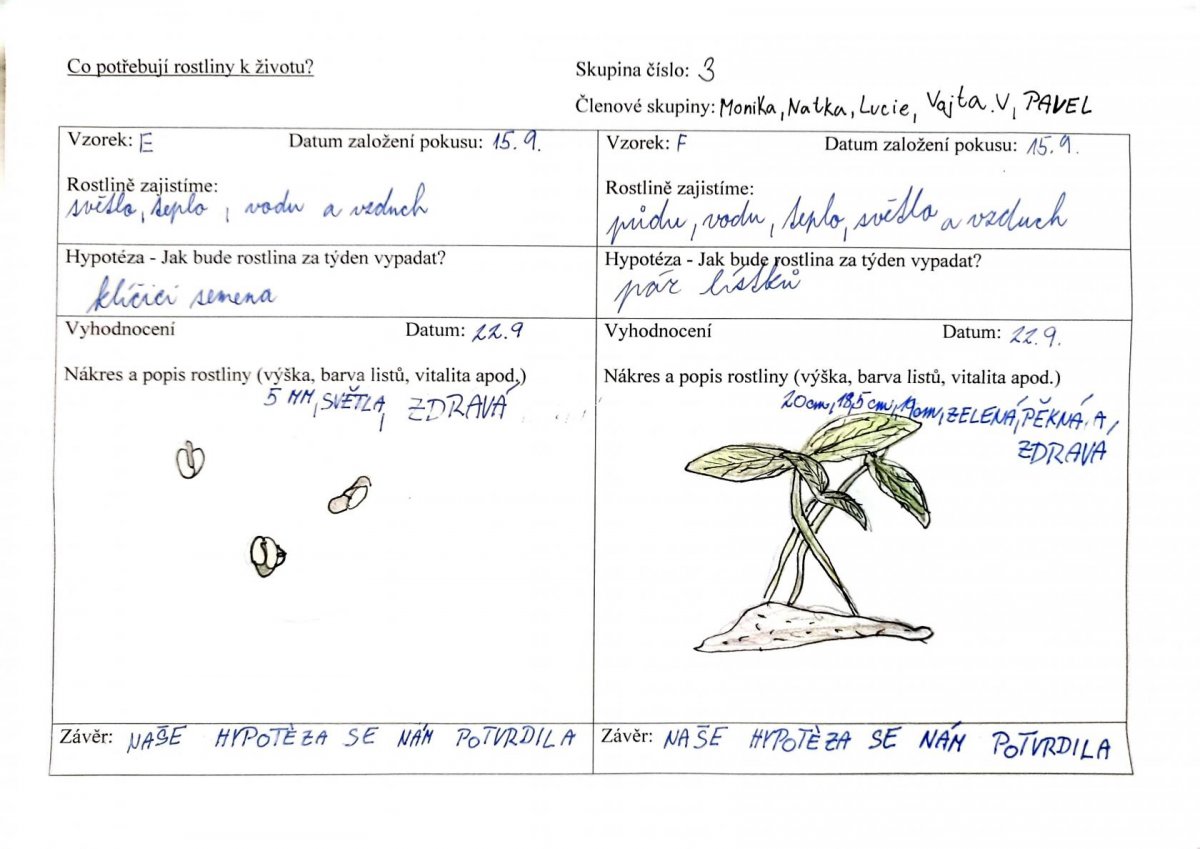 Co potřebují rostliny k životu?
Skupina číslo: 3
Členové skupiny: Monika, Natka, Lucie, Vajta.V, PAVEL
Vzorek: E Datum založení pokusu: 15.9.
Rostlině zajistíme:
světlo, teplo, vodu a vzduch
Hypotéza - Jak bude rostlina za týden vypadat?
klíčící semena
Vyhodnocení Datum: 22.9
Nákres a popis rostliny (výška, barva listů, vitalita apod.)
5 MM, SVĚTLA, ZDRAVÁ
Závěr: NAŠE HYPOTÈZA SE NÁM POTVRDILA
Vzorek: F Datum založení pokusu: 15.9.
Rostlině zajistíme:
půdu, vodu, teplo, světlo a vzduch
Hypotéza - Jak bude rostlina za týden vypadat?
pár lístků
Vyhodnocení Datum: 22.9.
Nákres a popis rostliny (výška, barva listů, vitalita apod.)
20cm, 18,5 cm, 19cm, ZELENÁ, PĚKNÁ A
ZDRAVÁ
Závěr: NAŠE HYPOTÈZA SE NÁM POTVRDILA